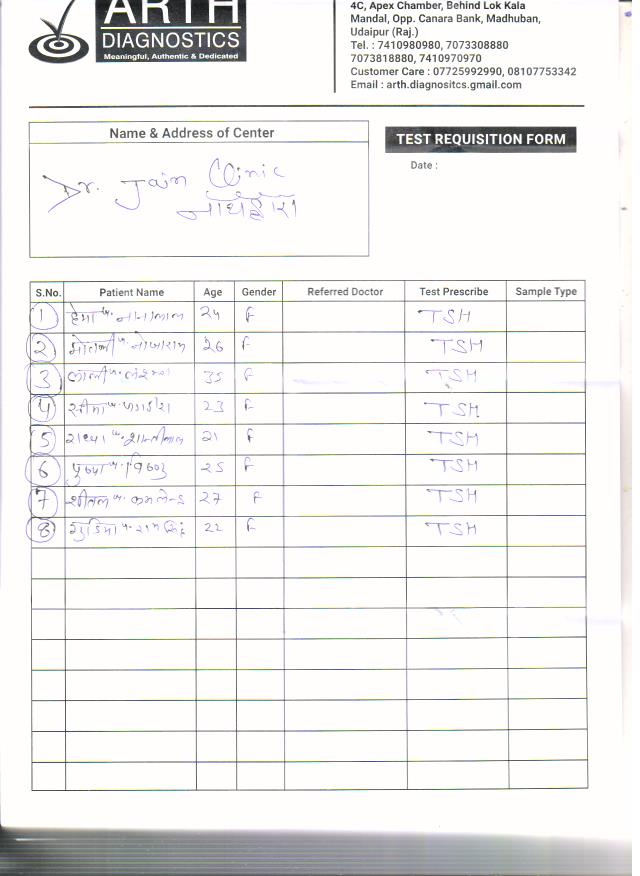 ARTH
DIAGNOSTICS
Meaningful, Authentic & Dedicated
4C, Apex Chamber, Behind Lok Kala
Mandal, Opp. Canara Bank, Madhuban,
Udaipur (Raj.)
Tel. : 7410980980, 7073308880
7073818880, 7410970970
Customer Care : 07725992990, 08107753342
Email : arth.diagnositcs.gmail.com
Name & Address of Center
TEST REQUISITION FORM
Date :
Dr. Jain Clinic
नाथद्वारा
S.No. Patient Name Age Gender Referred Doctor Test Prescribe Sample Type
1 हेमा w. नानालाल 24 F TSH
2 26 F TSH
3 35 F TSH
4 सीमा w. 23 F TSH
5 w. शान्तीलाल 21 F TSH
6 पुष्पा w. विष्णु 25 F TSH
7 शीतल w. कमलेन्द्र 27 F TSH
8 गुडिया w. राम सिंह 22 F TSH